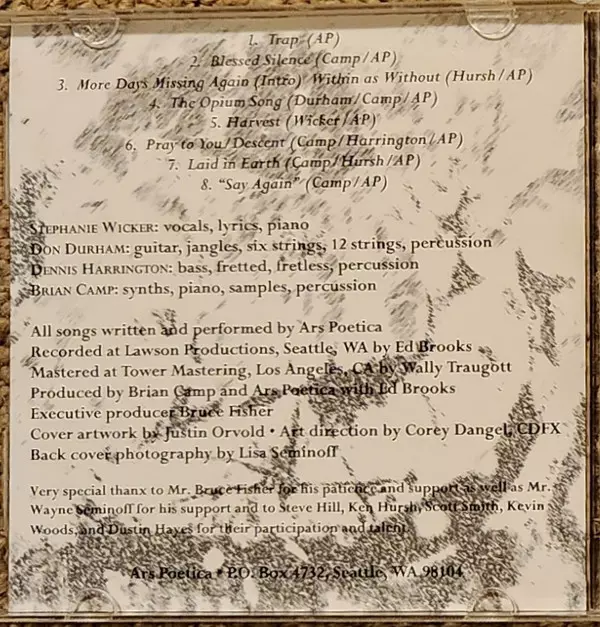 1. Trap (AP)
2. Blessed Silence (Camp/AP)
3. More Days Missing Again (Intro) Within as Without (Hursh/AP)
4. The Opium Song (Durham/Camp/AP)
5. Harvest (Wicker/AP)
6. Pray to You/Descent (Camp/Harrington/AP)
7. Laid in Earth (Camp/Hursh/AP)
8. "Say Again" (Camp/AP)
STEPHANIE WICKER: vocals, lyrics, piano
DON DURHAM: guitar, jangles, six strings, 12 strings, percussion
DENNIS HARRINGTON: bass, fretted, fretless, percussion
BRIAN CAMP: synths, piano, samples, percussion
All songs written and performed by Ars Poetica
Recorded at Lawson Productions, Seattle, WA by Ed Brooks
Mastered at Tower Mastering, Los Angeles, CA by Wally Traugott
Produced by Brian Camp and Ars Poetica with Ed Brooks
Executive producer Bruce Fisher
Cover artwork by Justin Orvold • Art direction by Corey Dangel, CDFX
Back cover photography by Lisa Seminoff
Very special thanx to Mr. Bruce Fisher for his patience and support as well as Mr.
Wayne Seminoff for his support and to Steve Hill, Ken Hursh, Scott Smith, Kevin
Woods, and Dustin Hayes for their participation and talent.
Ars Poetica • P.O. Box 4732, Seattle, WA 98104